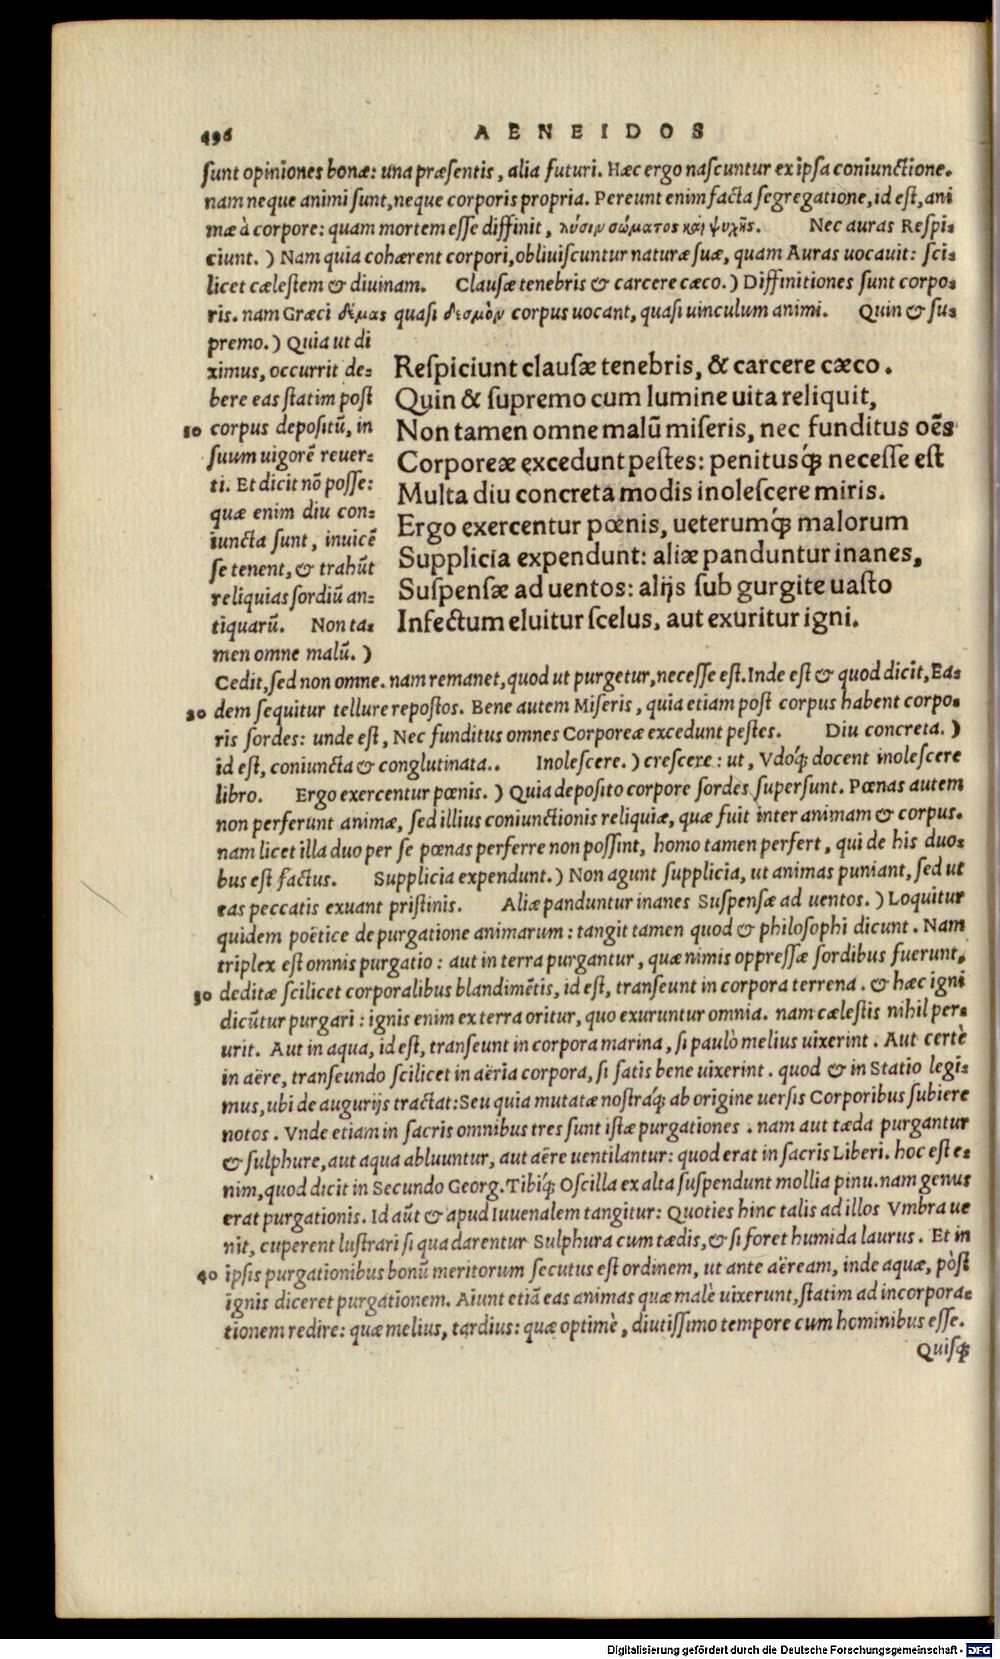 496 AENEIDOS
sunt opiniones bonæ: una præsentis, alia futuri. Hæc ergo nascuntur ex ipsa coniunctione.
nam neque animi sunt, neque corporis propria. Pereunt enim facta segregatione, id est, ani
mæ à corpore: quam mortem esse diffinit, λύσιν σώματος καὶ ψυχῆς. Nec auras Respi-
ciunt.) Nam quia cohærent corpori, obliuiscuntur naturæ suæ, quam Auras uocauit: sci-
licet cælestem & diuinam. Clausæ tenebris & carcere cæco.) Diffinitiones sunt corpo-
ris. nam Græci δέμας quasi δεσμὸν corpus uocant, quasi uinculum animi. Quin & su-
premo.) Quia ut di
ximus, occurrit de-
bere eas statim post
10 corpus depositū, in
suum uigorē reuer-
ti. Et dicit nō posse:
quæ enim diu con-
iuncta sunt, inuicē
se tenent, & trahūt
reliquias sordiū an-
tiquarū. Non ta-
men omne malū.)
Respiciunt clausæ tenebris, & carcere cæco.
Quin & supremo cum lumine uita reliquit,
Non tamen omne malū miseris, nec funditus oēs
Corporeæ excedunt pestes: penitusq́; necesse est
Multa diu concreta modis inolescere miris.
Ergo exercentur pœnis, ueterumq́; malorum
Supplicia expendunt: aliæ panduntur inanes,
Suspensæ ad uentos: alijs sub gurgite uasto
Infectum eluitur scelus, aut exuritur igni.
Cedit, sed non omne. nam remanet, quod ut purgetur, necesse est. Inde est & quod dicit, Ea-
20 dem sequitur tellure repostos. Bene autem Miseris, quia etiam post corpus habent corpo-
ris sordes: unde est, Nec funditus omnes Corporeæ excedunt pestes. Diu concreta.)
id est, coniuncta & conglutinata.. Inolescere.) crescere: ut, Vdoq́; docent inolescere
libro. Ergo exercentur pœnis.) Quia deposito corpore sordes supersunt. Pœnas autem
non perferunt animæ, sed illius coniunctionis reliquiæ, quæ fuit inter animam & corpus.
nam licet illa duo per se pœnas perferre non possint, homo tamen perfert, qui de his duo-
bus est factus. Supplicia expendunt.) Non agunt supplicia, ut animas puniant, sed ut
eas peccatis exuant pristinis. Aliæ panduntur inanes Suspensæ ad uentos.) Loquitur
quidem poëtice de purgatione animarum: tangit tamen quod & philosophi dicunt. Nam
triplex est omnis purgatio: aut in terra purgantur, quæ nimis oppressæ sordibus fuerunt,
30 deditæ scilicet corporalibus blandimētis, id est, transeunt in corpora terrena. & hæc igni
dicūtur purgari: ignis enim ex terra oritur, quo exuruntur omnia. nam cælestis nihil per-
urit. Aut in aqua, id est, transeunt in corpora marina, si paulò melius uixerint. Aut certè
in aëre, transeundo scilicet in aëria corpora, si satis bene uixerint. quod & in Statio legi-
mus, ubi de augurijs tractat: Seu quia mutatæ nostráq; ab origine uersis Corporibus subiere
notos. Vnde etiam in sacris omnibus tres sunt istæ purgationes. nam aut tæda purgantur
& sulphure, aut aqua abluuntur, aut aëre uentilantur: quod erat in sacris Liberi. hoc est e-
nim, quod dicit in Secundo Georg. Tibiq́; Oscilla ex alta suspendunt mollia pinu. nam genus
erat purgationis. Id aūt & apud Iuuenalem tangitur: Quoties hinc talis ad illos Vmbra ue
nit, cuperent lustrari si qua darentur Sulphura cum tædis, & si foret humida laurus. Et in
40 ipsis purgationibus bonū meritorum secutus est ordinem, ut ante aëream, inde aquæ, pòst
ignis diceret purgationem. Aiunt etiā eas animas quæ malè uixerunt, statim ad incorpora-
tionem redire: quæ melius, tardius: quæ optimè, diutissimo tempore cum hominibus esse.
Quisq́;
Digitalisierung gefördert durch die Deutsche Forschungsgemeinschaft - DFG